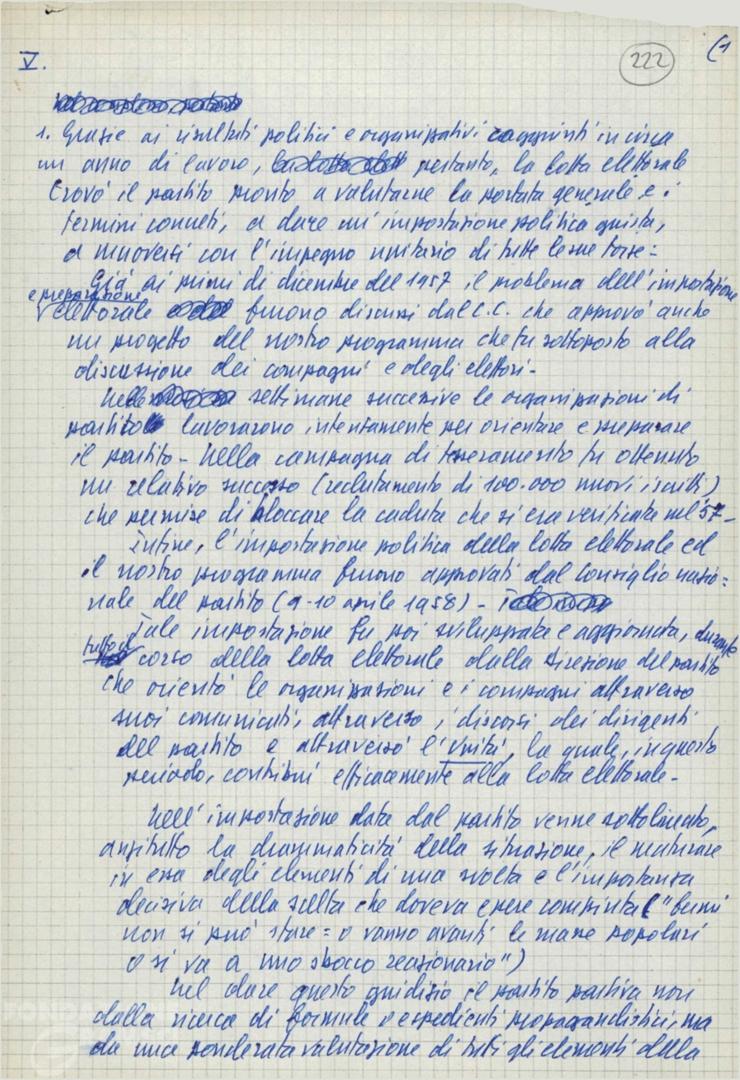 V.
222
(1
1. Grazie ai risultati politici e organizzativi raggiunti in circa
un anno di lavoro, pertanto, la lotta elettorale
trovò il partito pronto a valutarne la portata generale e i
termini concreti, a dare un'impostazione politica giusta,
a muoversi con l'impegno unitario di tutte le sue forze=
Già ai primi di dicembre del 1957 il problema dell'impostazione
e preparazione
elettorale furono discussi dal C.C. che approvò anche
un progetto del nostro programma che fu sottoposto alla
discussione dei compagni e degli elettori-
Nelle settimane successive le organizzazioni di
partito lavorarono intensamente per orientare e preparare
il partito- Nella campagna di tesseramento fu ottenuto
un relativo successo (reclutamento di 100.000 nuovi iscritti)
che permise di bloccare la caduta che si era verificata nel 57-
Infine, l'impostazione politica della lotta elettorale ed
il nostro programma furono approvati dal Consiglio nazio=
nale del partito (9-10 aprile 1958)-
Tale impostazione fu poi sviluppata e aggiornata, durante
tutto il corso della lotta elettorale dalla Direzione del partito
che orientò le organizzazioni e i compagni attraverso
suoi comunicati, attraverso i discorsi dei dirigenti
del partito e attraverso l'Unità, la quale, in questo
periodo, contribuì efficacemente alla lotta elettorale-
Nell'impostazione data dal partito venne sottolineato,
anzitutto la drammaticità della situazione, il maturare
in essa degli elementi di una svolta e l'importanza
decisiva della scelta che doveva essere compiuta ("fermi
non si può stare= o vanno avanti le masse popolari
o si va a uno sbocco reazionario")
Nel dare questo giudizio il partito partiva non
dalla ricerca di formule o espedienti propagandistici, ma
da una ponderata valutazione di tutti gli elementi della